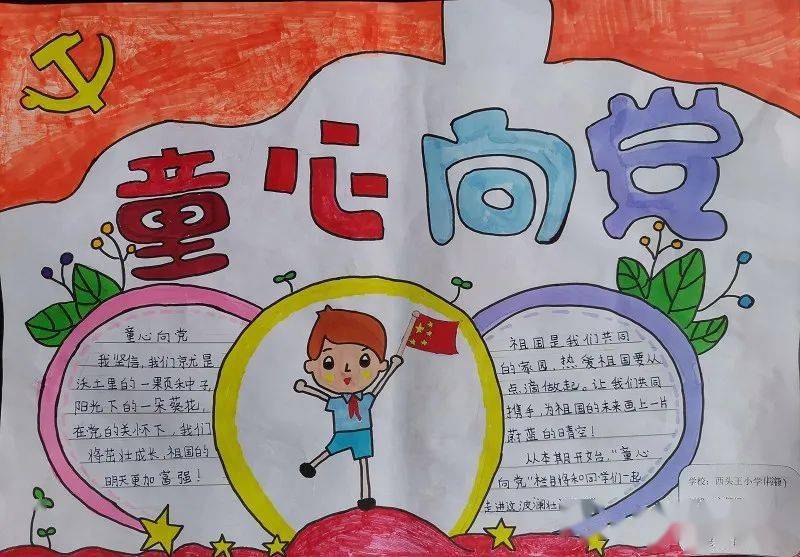 童心向党
童心向党
我坚信,我们就是
沃土里的一颗种子
阳光下的一朵葵花,
在党的关怀下,我们
将茁壮成长,祖国的
明天更加富强!
祖国是我们共同
的家园,热爱祖国要从
点滴做起。让我们共同
携手,为祖国的未来画上一片
蔚蓝的晴空!
从本期开始,“童心
向党”栏目将和同学们一起
走进这波澜壮
学校:西头王小学